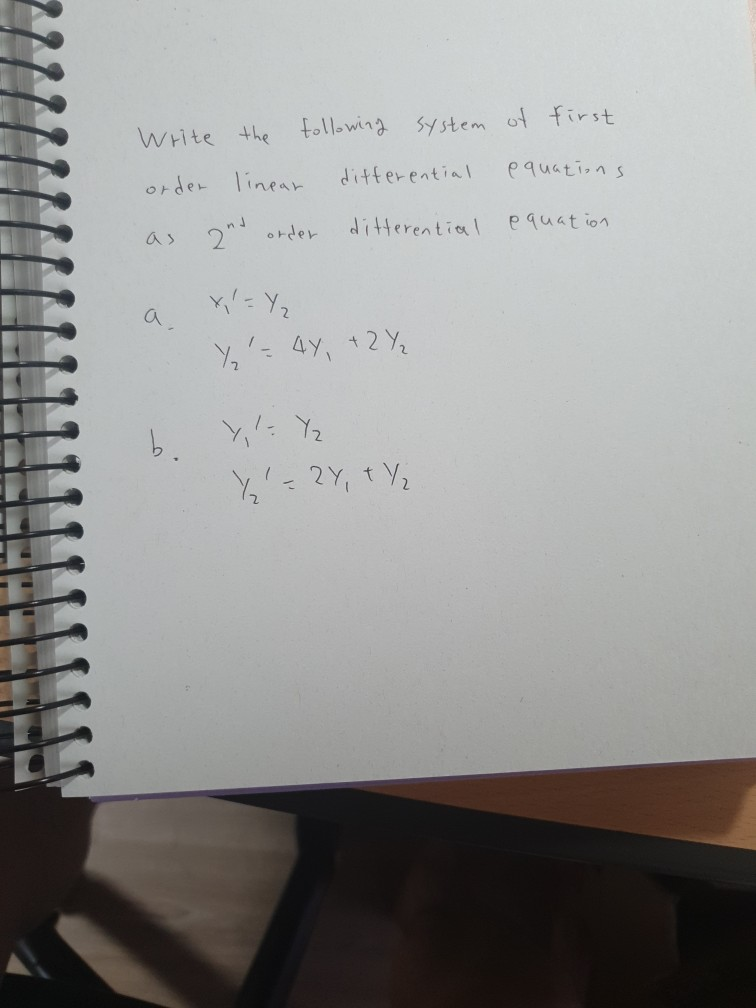 Write the following system of first
order linear differential equations
as 2nd order differential equation
a. y₁' = y₂
y₂' = 4y₁ + 2y₂
b. y₁' = y₂
y₂' = 2y₁ + y₂